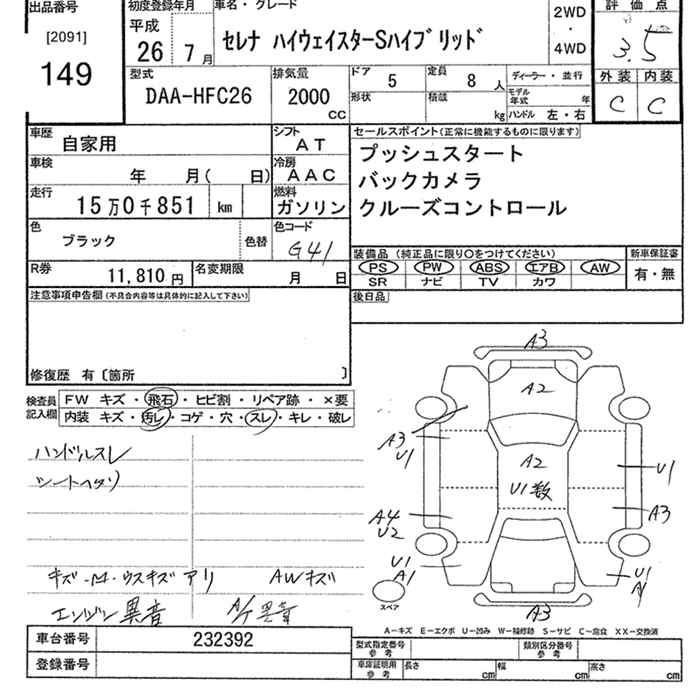 出品番号
[2091]
149
初度登録年月
平成
26 7 月
車名・グレード
セレナ ハイウェイスターSハイブリッド
2WD
・
4WD
評 価 点
3.5
外装 内装
C C
型式
DAA-HFC26
排気量
2000
CC
ドア
5
定員
8 人
ディーラー・並行
形状
積載
kg
モデル
年式 年
ハンドル 左・右
車歴
自家用
シフト
AT
車検
年 月( 日)
冷房
AAC
走行
15万0千851 km
燃料
ガソリン
色
ブラック
色替
色コード
G41
R券
11,810 円
名変期限
月 日
セールスポイント(正常に機能するものに限ります)
プッシュスタート
バックカメラ
クルーズコントロール
装備品 (純正品に限り○をつけてください)
PS PW ABS エアB AW
SR ナビ TV カワ
新車保証書
有・無
後日品
注意事項申告欄(不具合内容等は具体的に記入して下さい)
修復歴 有〔箇所 〕
検査員
記入欄
FW キズ・飛石・ヒビ割・リペア跡・×要
内装 キズ・汚レ・コゲ・穴・スレ・キレ・破レ
ハンドルスレ
シートヘタリ
キズ・凹・ウスキズアリ AWキズ
エンジン異音
A/T異音
A3
A2
A3
U1
A2
U1数
U1
A4
U2
A3
U1
A1
U1
A1
A3
スペア
A-キズ E-エクボ U-凹み W-補修跡 S-サビ C-腐食 XX-交換済
車台番号
232392
登録番号
型式指定番号
参考
類別区分番号
参考
車庫証明用
参考
長さ cm
幅 cm
高さ cm